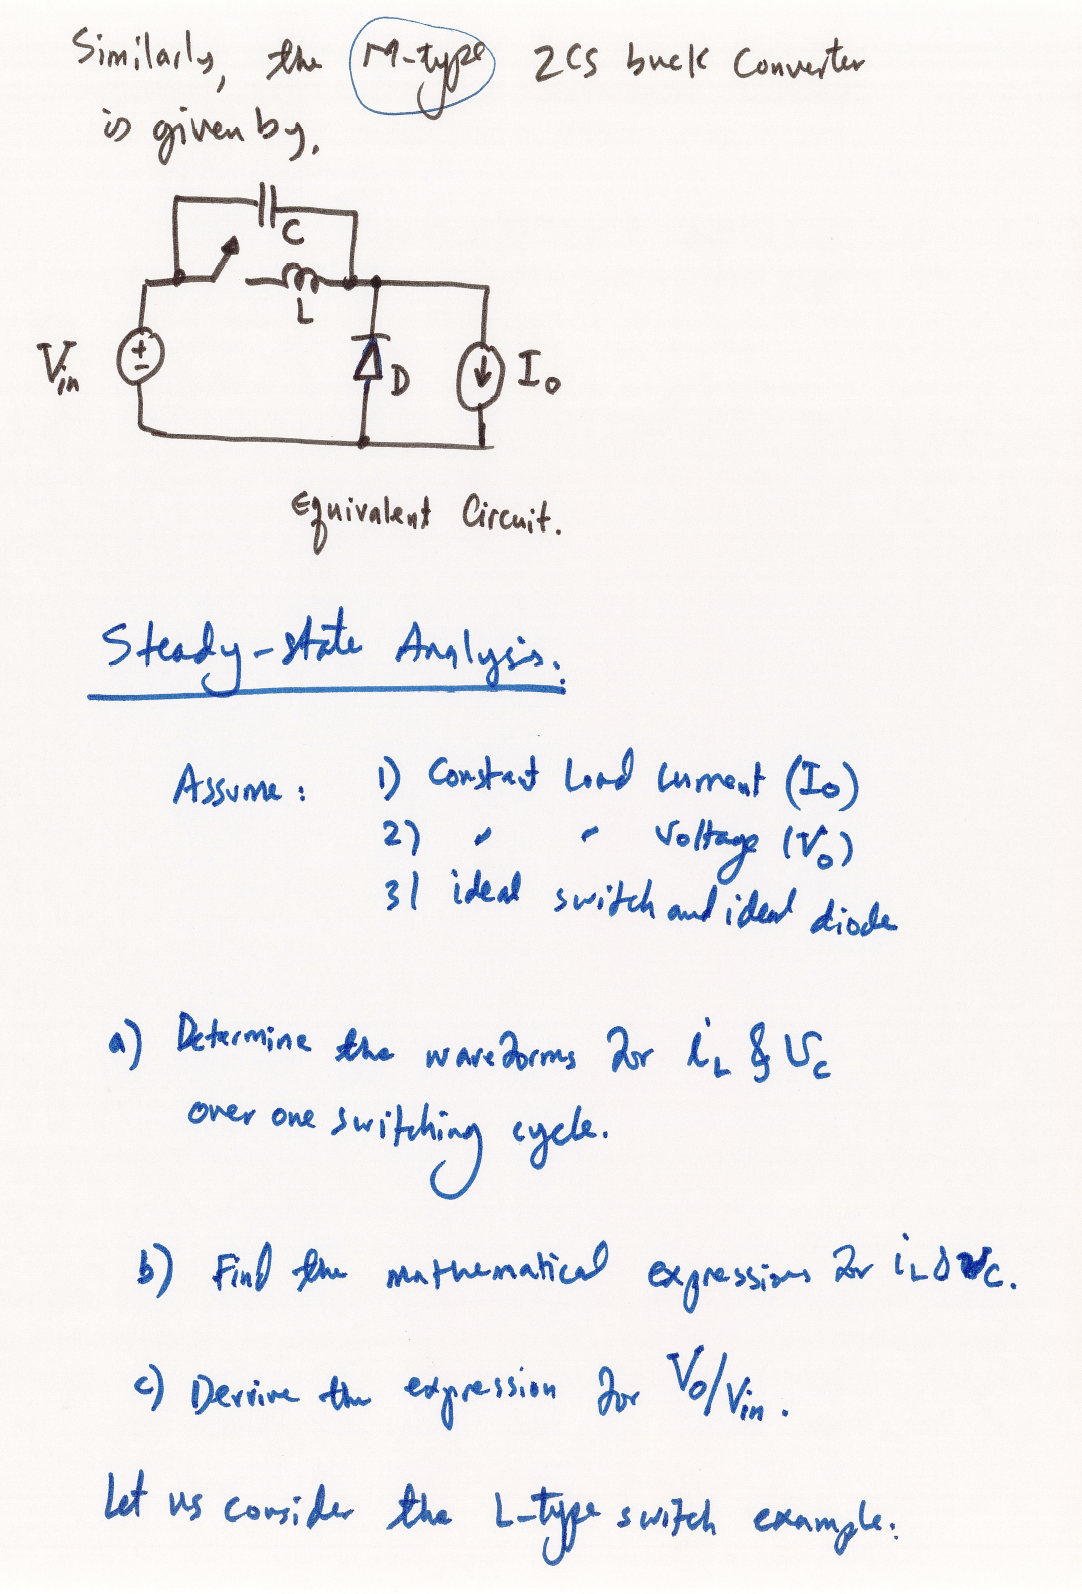 Similarly, the M-type ZCS buck Converter
is given by,
C
L
Vin
+
-
D
Io
Equivalent Circuit.
Steady-state Analysis.
Assume: 1) Constant Load Current (Io)
2) " " Voltage (Vo)
3) ideal switch and ideal diode
a) Determine the waveforms for iL & Vc
over one switching cycle.
b) Find the mathematical expressions for iL & Vc.
c) Derrive the expression for Vo/Vin.
Let us consider the L-type switch example: